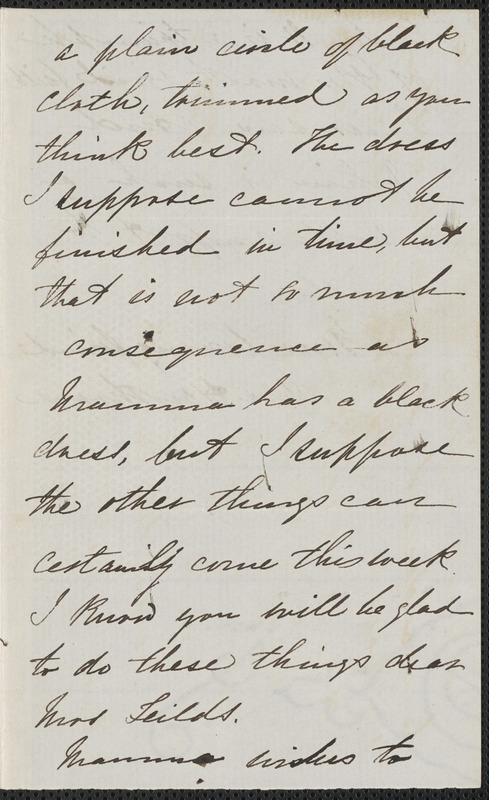 a plain circle of black
cloth, trimmed as you
think best. The dress
I suppose cannot be
finished in time, but
that is not so much
consequence as
Mamma has a black
dress, but I suppose
the other things can
certainly come this week
I know you will be glad
to do these things dear
Mrs Feilds.
Mamma wishes to